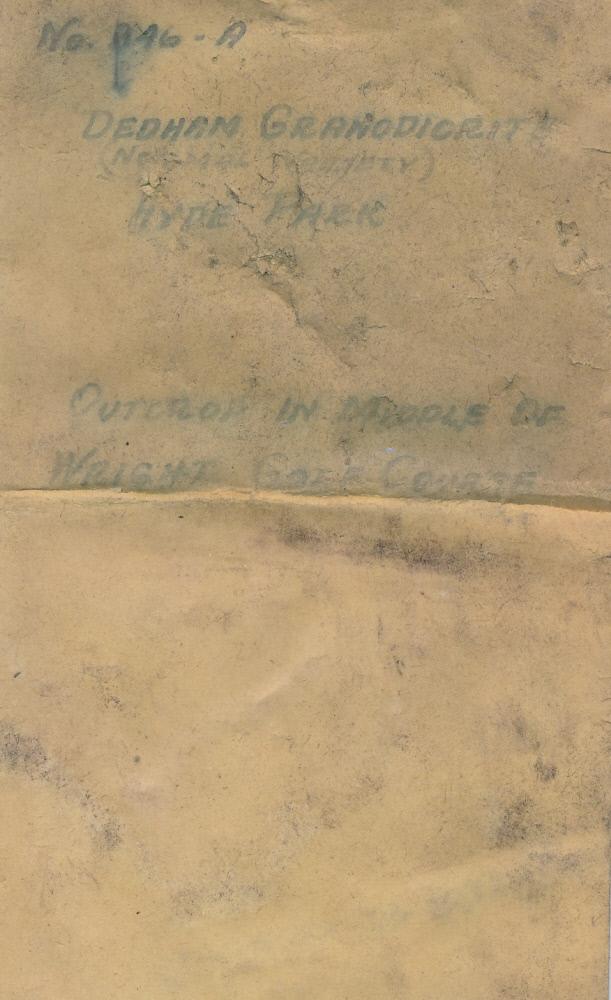 No. 346-A
DEDHAM GRANODIORITE
(NORMAL VARIETY)
HYDE PARK
OUTCROP IN MIDDLE OF
WRIGHT GOLF COURSE